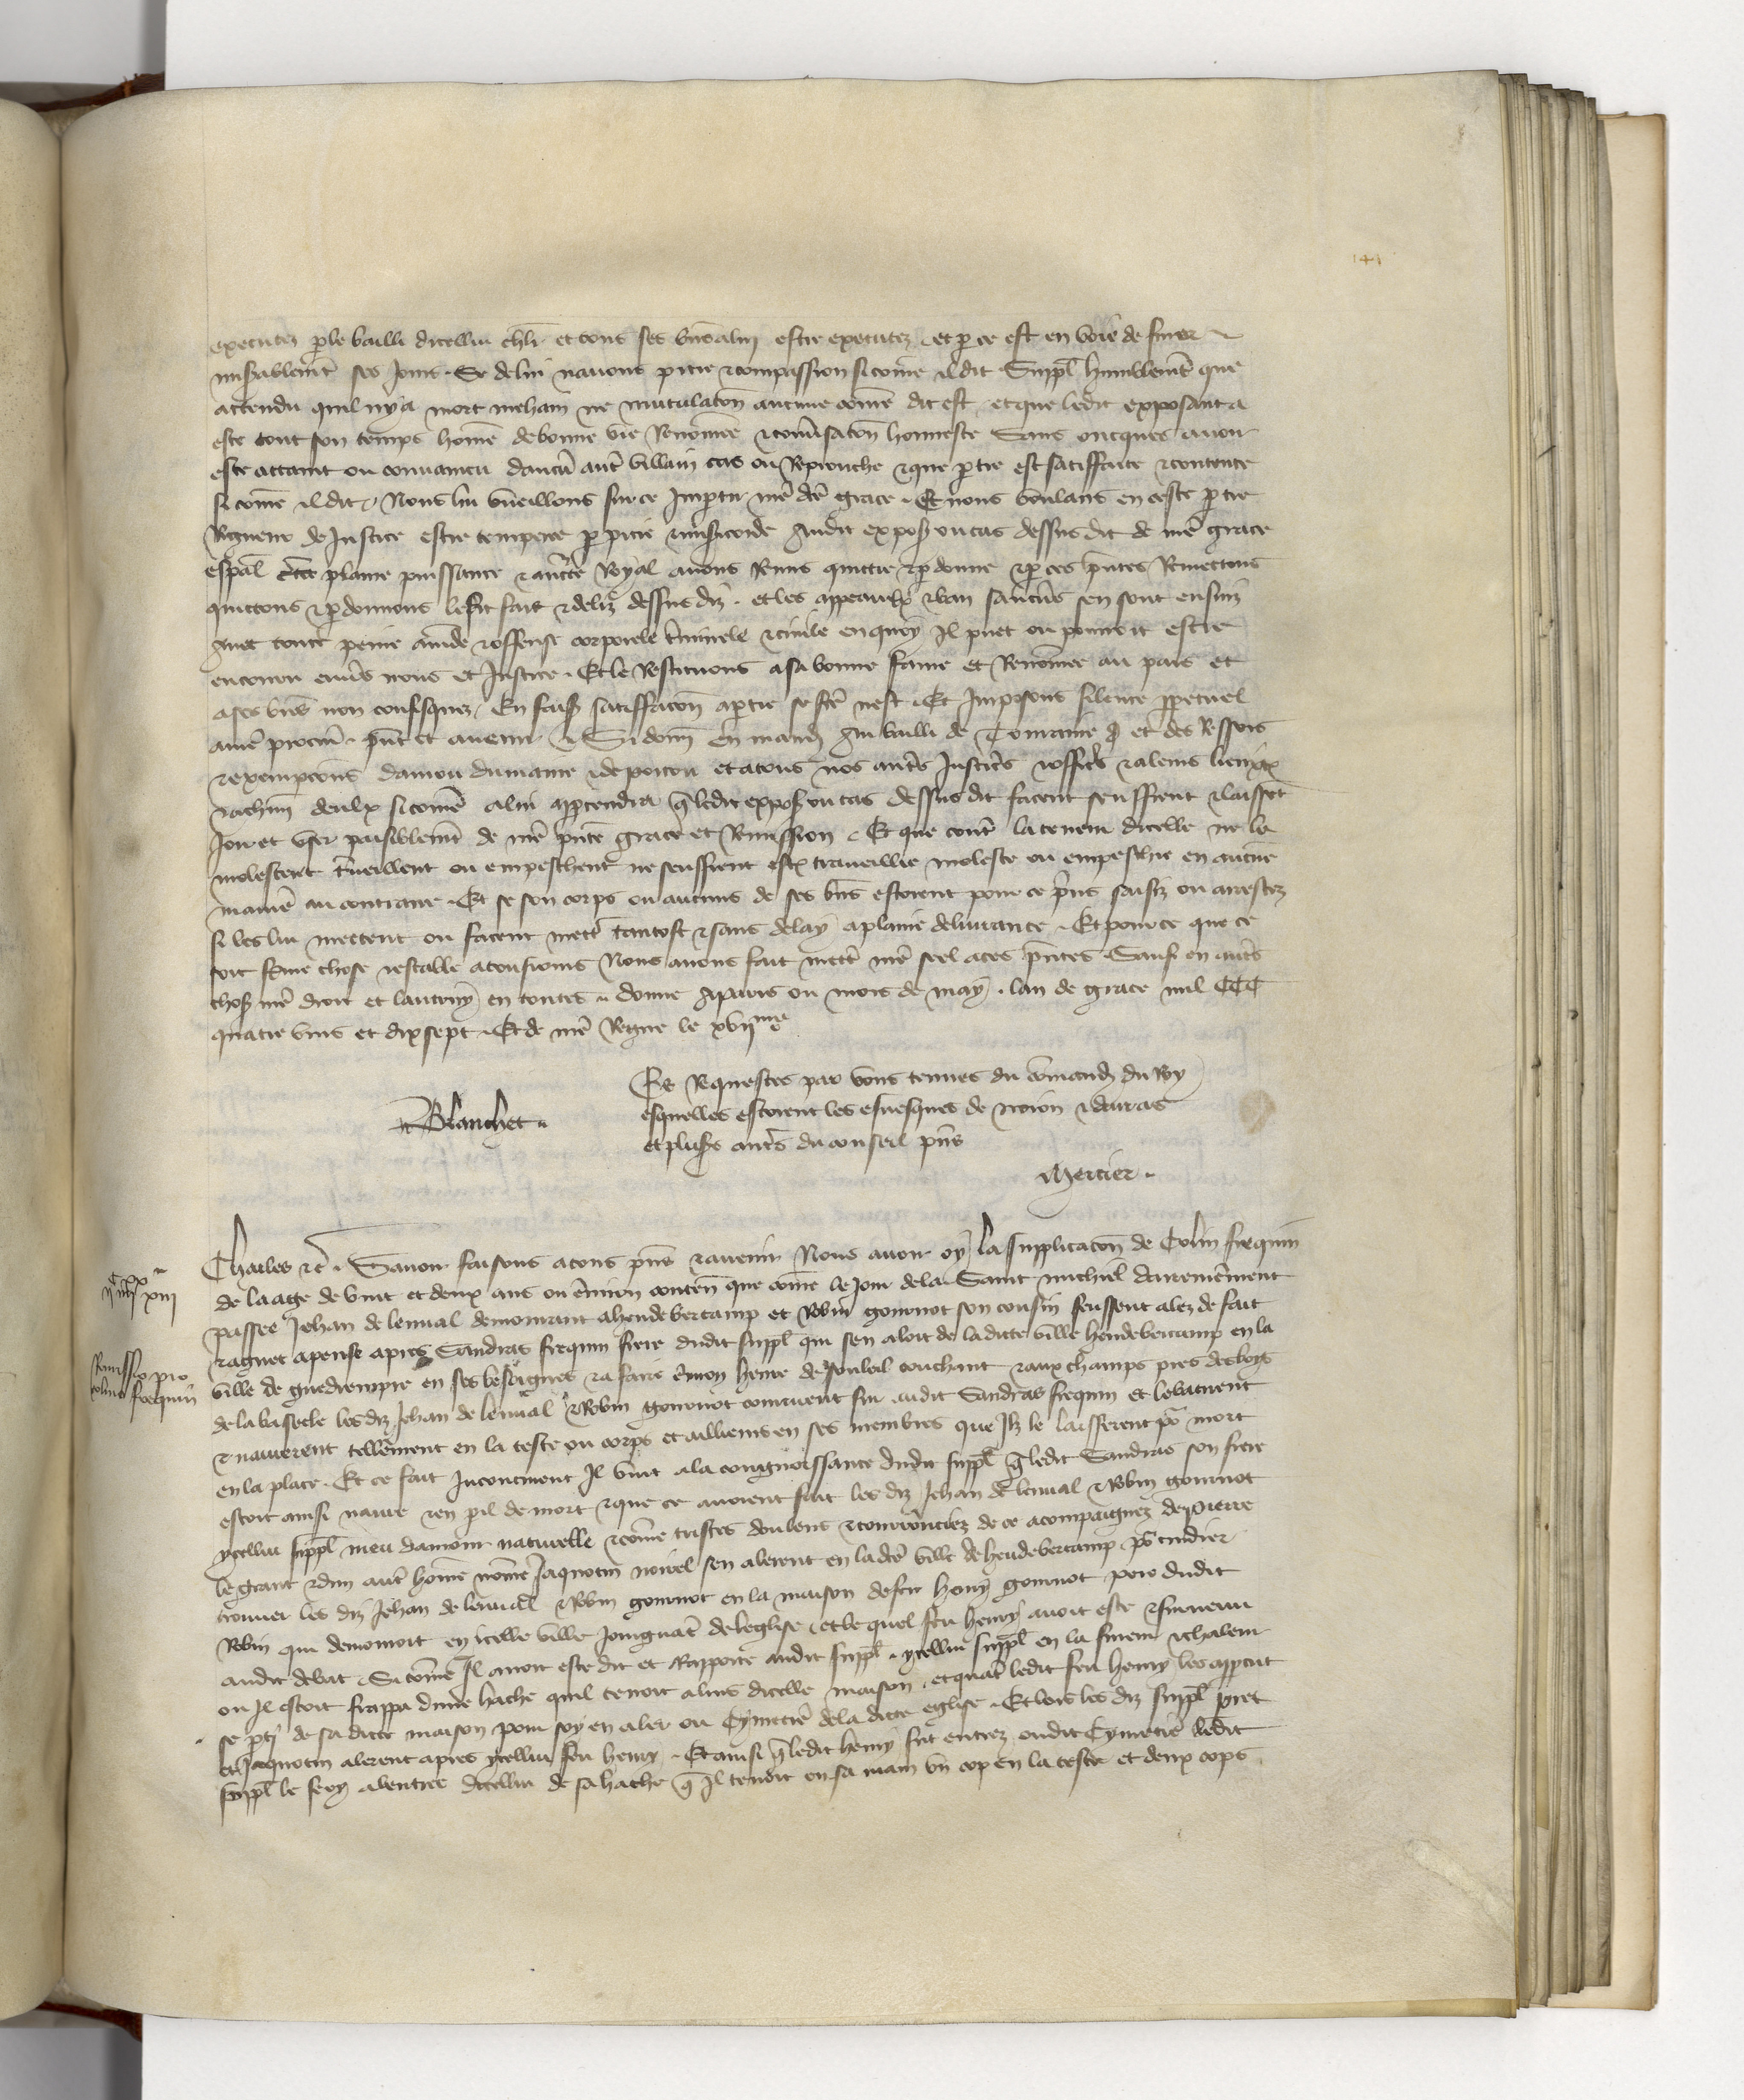 executez p le bailli dicellui chlr et tous ses biens alui estre executez et p ce est en voie de finer
misablemt ses jours Se de lui navons pitie & compassion sicome il dit Suppl humblemt que
attendu quil ny a mort mehain ne mutulacon aucune come dit est et que ledit exposant a
este tout son temps home de bonne vie Renomee & conversacon honneste Sans oncques avoir
este attaint ou convaincu daucun autre villain cas ou Reprouche & que ptie est satiffaite & contente
si come il dit Nous lui vueillons sur ce Impartir nre dte grace Et nous voulans en ceste ptie
Rigueur de Justice estre tempree p pitie & misericorde Audit expos ou cas dessus dit de nre grace
espal ctee plaine puissance & aucte Royal avons Remis quictie & pdonne & p ces pntes Remettons
quictons & pdonnons ledit fait & deliz dessus diz et les appeaulx & ban saucuns sen sont ensuiz
Avec toute peine amde & offense corporele criminele & civile en quoy Il puet ou pourroit estre
encouru envs nous et Justice Et le Restituons a sa bonne fame et Renomee au pais et
a ses biens non confisquez En faisant satiffacon a ptie se fte nest Et Imposons silence ppetuel
a nre procur pnt et avenir Si donn en mand Au bailli de Touraine et des Ressors
& exempcons danjou du maine & de poitou et a tous nos autres Justicrs & officrs & a leurs lieux
& a chun deulx sicome a lui apptendra q ledit expos ou cas dessus dit facent seuffrent & laissent
Joir et user paisiblemt de nre pnte grace et Remission Et que contre la teneur dicelle ne le
molestent traveillent ou empeschent ne seuffrent estre traveillie moleste ou empeschie en aucune
maniere au contraire Et se son corps ou aucuns de ses biens estoient pour ce prins saisiz ou arrestez
si les lui mettent ou facent mettre tantost & sans delay a plaine delivrance Et pour ce que ce
soit ferme chose & estable a tousjours Nous avons fait mettre nre seel a ces pntes Sauf en autres
choses nre droit et lautruy en toutes donne A Paris ou mois de may lan de grace mil CCC
quatre vins et dix sept Et de nre Regne le xvii me
Es Requestes par vous tenues du comand du Roy
esquelles estoient les evesques de noion & darras
Blanchet
et plus autres du conseil pns
Mercier
Charles &c Savoir faisons a tous pns & avenir Nous avoir oy la supplicacon de Colin frequin
de laage de vint et deux ans ou environ conten que come le Jour de la Saint michiel darrenierement
passee Jehan de lenval demourant a heudebertamp et Robin gournot son cousin feussent alez de fait
& aguet apense apres Sandras frequin frere dudit suppl qui sen aloit de ladicte ville heudebertamp en la
ville de guedrempre en ses besoignes & a faire environ heure de souleil couchant & aux champs pres des boys
de la bassecle les diz Jehan de lenval & Robin gournot coururent sur audit Sandras frequin et le batirent
& navrerent tellement en la teste ou corps et ailleurs en ses membres que Ilz le laisserent pour mort
en la place Et ce fait Incontinent Il vint a la congnoissance dudit suppl q ledit Sandras son frere
estoit ainsi navre & en pil de mort & que ce avoient fait les diz Jehan de lenval & Robin gournot
ycellui suppl meu damour naturelle & come tristes doulens & courrouciez de ce acompaignez de pierre
le grant & dun autre home nome Jaquotin noirel sen alerent en ladte ville de heudebertamp pour cuidier
trouver les diz Jehan de lenval & Robin gournot en la maison de feu henry gournot pere dudit
Robin qui demouroit en icelle ville Joingnant de leglise et le quel feu henry avoit este & survenu
audit debat Si come Il avoit este dit et Rapporte audit suppl ycellui suppl en la fureur & chaleur
ou Il estoit frappa dune hache quil tenoit a luis dicelle maison et quant ledit feu henry les appcut
se pti de sa dicte maison pour soy en aler ou Cymetiere de la dicte eglise Et lors les diz suppl
et Jaquotin alerent apres ycellui feu henry Et ainsi q ledit henry fut entrez oudit Cymetiere ledit
suppl le fery a lentree dicellui de sa hache q Il tenoit en sa main un cop en la teste et deux cops
Remissio pro
Colino frequin